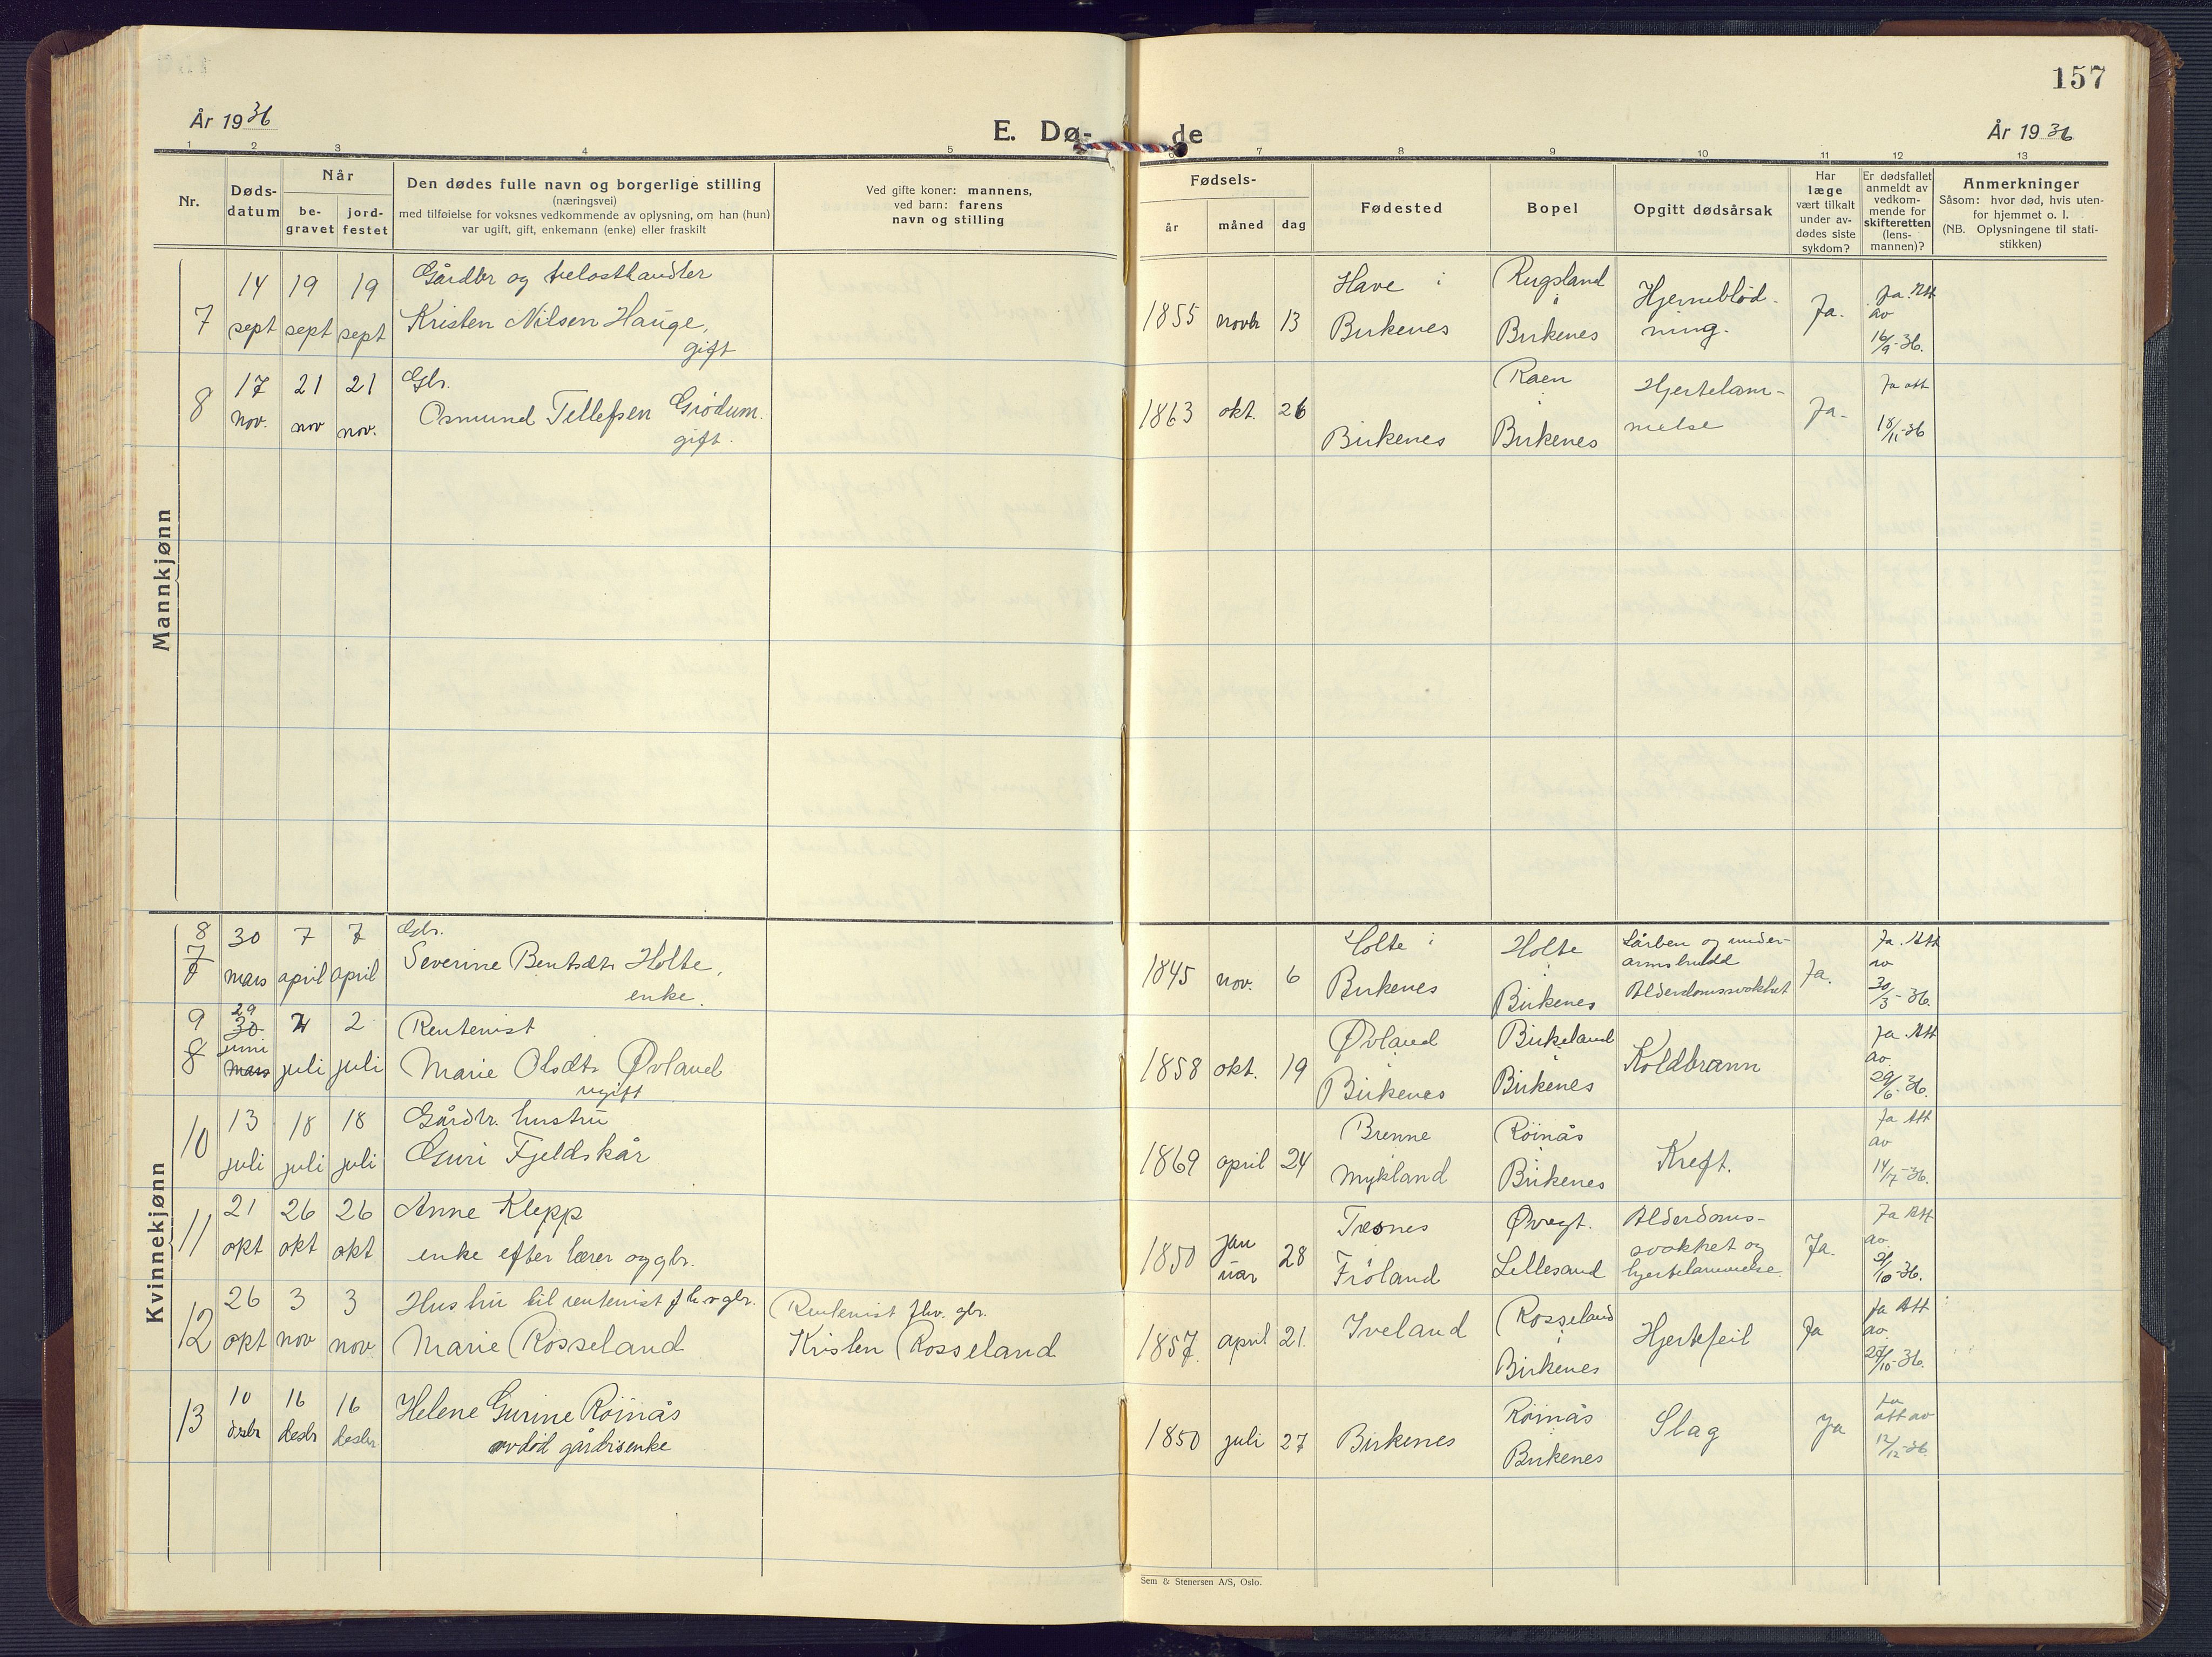 157
År 1936
E. Dø-
de
År 1936
1 2 3 4 5
6 7 8 9 10 11 12 13
Nr.
Døds-
datum
Når
be-
gravet
jord-
festet
Den dødes fulle navn og borgerlige stilling
(næringsvei)
med tilføielse for voksnes vedkommende av oplysning, om han (hun)
var ugift, gift, enkemann (enke) eller fraskilt
Ved gifte koner: mannens,
ved barn: farens
navn og stilling
Fødsels-
år måned dag
Fødested
Bopel
Opgitt dødsårsak
Har
læge
vært tilkalt
under av-
dødes siste
sykdom?
Er dødsfallet
anmeldt av
vedkom-
mende for
skifteretten
(lens-
mannen)?
Anmerkninger
Såsom: hvor død, hvis uten-
for hjemmet o. l.
(NB. Oplysningene til stati-
stikken)
Mannkjønn
7
14 19 19
sept sept sept
Gårdbr og trelasthandler
Kristen Nilsen Hauge,
gift
1855 novbr 13
Have i
Birkenes
Rugsland
i
Birkenes
Hjerneblød-
ning.
Ja.
Ja. Att
av
16/9-36.
8
17 21 21
nov. nov nov.
Gbr.
Osmund Tellefsen Grødum.
gift.
1863 okt. 26
Birkenes
Raen
i
Birkenes
Hjertelam-
melse
Ja-
Ja att
18/11-36
Kvinnekjønn
8
7
8
30 7 7
mars april april
Gbr.
Severine Bentsdtr Holte,
enke.
1845 nov. 6
Holte i
Birkenes
Holte
i
Birkenes
Lårben og under-
armsbrudd
Alderdomssvakhet
Ja.
Ja. Att
av
30/3-36.
9
8
29
30 2 2
juni
mars juli juli
Rentenist
Marie Olsdtr Øvland
ugift
1858 okt. 19
Øvland
i
Birkenes
Birkeland
i
Birkenes
Koldbrann
Ja. Att
av
29/6-36.
10
13 18 18
juli juli juli
Gårdbr. hustru
Guri Fjeldskår
1869 april 24
Brenne
Mykland
Röinås
i
Birkenes
Kreft.
Ja Att
av
14/7-36.
11
21 26 26
okt okt okt
Anne Klepp
enke efter lærer og gbr.
1850 januar 28
Tresnes
Fröland
Øvregt.
Lillesand
Alderdoms-
svakhet og
hjertelammelse.
Ja.
Ja Att
av
21/10-36.
12
26 3 3
okt nov nov.
Hustru til rentenist fhv gbr.
Marie Rosseland
Rentenist fhv. gbr.
Kristen Rosseland
1857. april 21.
Iveland
Rosseland
i
Birkenes
Hjertefeil
Ja
Ja Att
av.
27/10-36.
13
10 16 16
desbr desbr desbr
Helene Gurine Röinås
avdöd gårdbrsenke
1850 juli 27
Birkenes
Röinås
Birkenes
Slag
Ja
Ja
att av
12/12-36.
Sem & Stenersen A/S, Oslo.